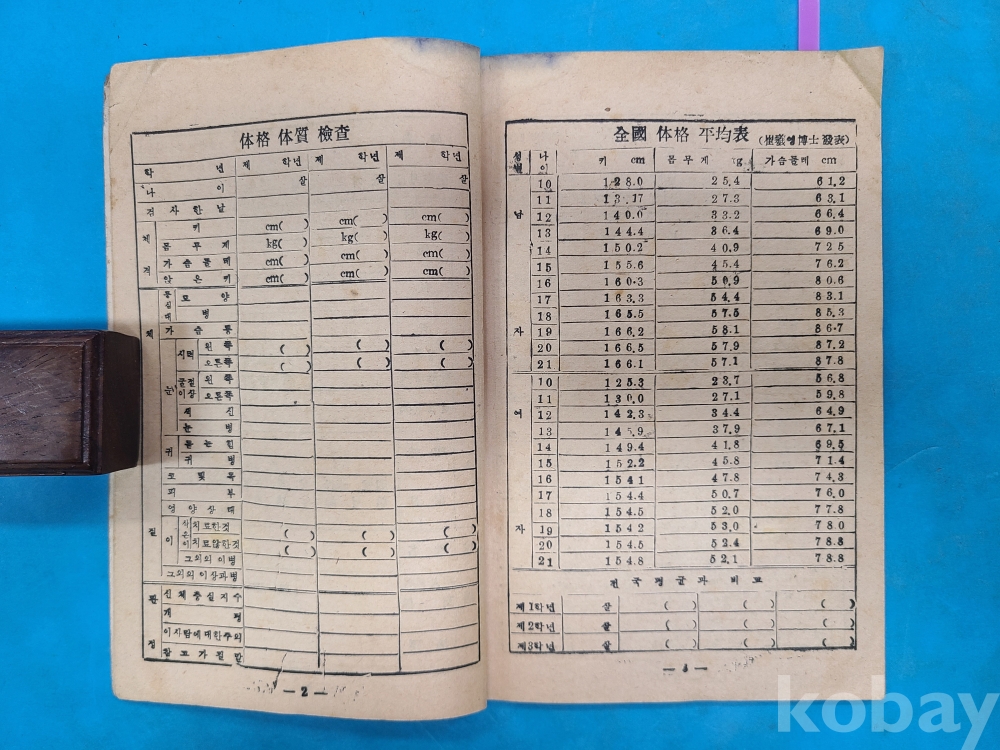 体格 体質 檢査
학 년 제 학년 제 학년 제 학년
나 이 살 살 살
검 사 한 날
체 키 cm( ) cm( ) cm( )
몸 무 게 kg( ) kg( ) kg( )
격 가슴둘레 cm( ) cm( ) cm( )
앉 은 키 cm( ) cm( ) cm( )
등심대 모 양
병
체 가 슴 통
눈 시력 왼 쪽 ( ) ( ) ( )
오른쪽 ( ) ( ) ( )
굴절이상 왼 쪽
오른쪽
색 신
눈 병
귀 듣 는 힘
귀 병
코 및 목
피 부
영 양 상 태
질 이 삭은이 치료한것 ( ) ( ) ( )
치료않한것 ( ) ( ) ( )
그외의 이병
그외의 이상과병
판 신체충실지수
개 평
정 이사람에대한주의
참고가될말
— 2 —
全國 体格 平均表 博士 發表)
성별 나이 키 cm 몸 무 게 가슴둘레 cm
10 128.0 25.4 61.2
11 13.17 27.3 63.1
남 12 140.0 33.2 66.4
13 144.4 36.4 69.0
14 150.2 40.9 725
15 155.6 45.4 76.2
16 160.3 50.9 80.6
17 163.3 54.4 83.1
18 165.5 57.5 85.3
자 19 166.2 58.1 86.7
20 166.5 57.9 87.2
21 166.1 57.1 87.8
10 125.3 23.7 56.8
11 130.0 27.1 59.8
여 12 142.3 34.4 64.9
13 145.9 37.9 67.1
14 149.4 41.8 69.5
15 152.2 45.8 71.4
16 1541 47.8 74.3
17 154.4 50.7 76.0
18 154.5 52.0 77.8
자 19 1542 53.0 780
20 154.5 52.4 78.8
21 154.8 52.1 788
전 국 평 균 과 비 교
제1학년 살 ( ) ( ) ( )
제2학년 살 ( ) ( ) ( )
제3학년 살 ( ) ( ) ( )
kobay